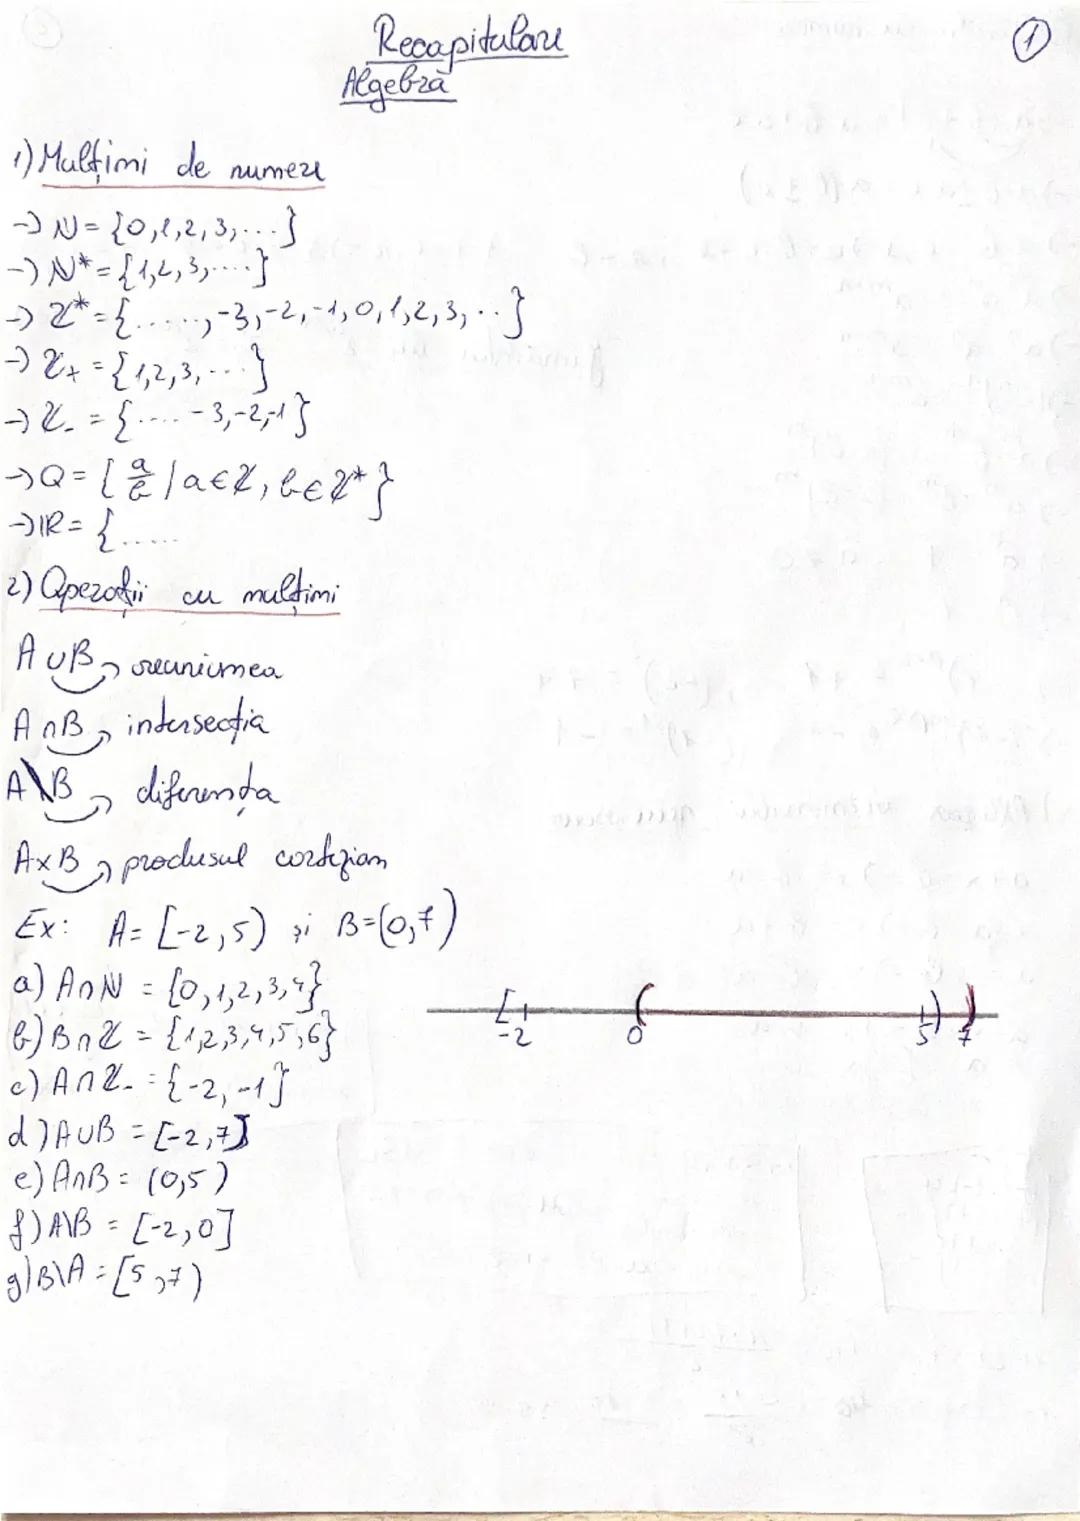 Recapitulare
Algebră
1
1) Mulțimi de numere
→ N = {0,1,2,3,...}
→ N* = {1,2,3,....}
→ Z* = {......,-3,-2,-1,0,1,2,3,..}
→ Z+ = {1,2,3,...}
→ Z- = {.... -3,-2,-1}
→ Q = { a/b | a∈Z, b∈Z* }
→ IR = {......
2) Operații cu mulțimi
A∪B → reuniunea
A∩B → intersecția
A\B → diferența
A×B → produsul cartezian
Ex: A= [-2,5) și B=(0,7)
a) A∩N = {0,1,2,3,4}
b) B∩Z = {1,2,3,4,5,6}
c) A∩Z- = {-2,-1}
d) A∪B = [-2,7]
e) A∩B = (0,5)
f) A\B = [-2,0]
g) B\A = [5,7)
[ ( ) )
-2 0 5 7